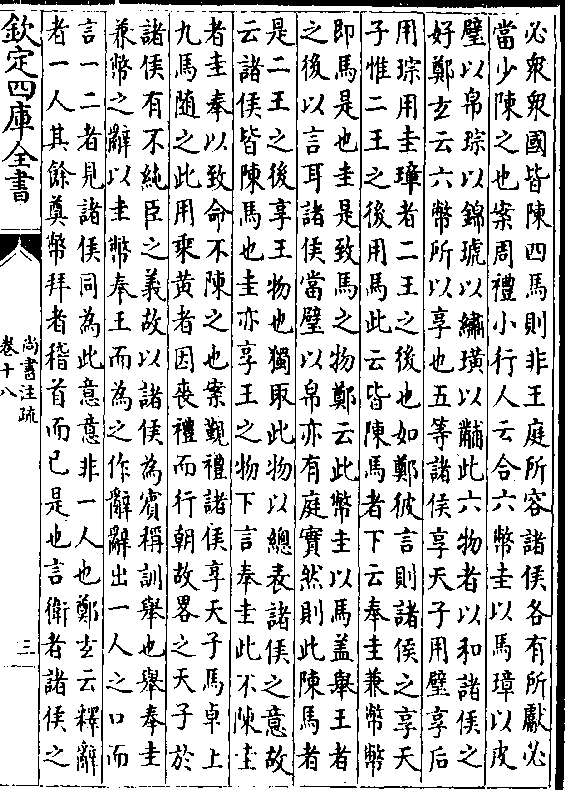 必衆衆國皆陳四馬則非王庭所容諸侯各有所獻必
當少陳之也案周禮小行人云合六幣圭以馬璋以皮
璧以帛琮以錦琥以繡璜以黼此六物者以和諸侯之
好鄭玄云六幣所以享也五等諸侯享天子用璧享后
用琮用圭璋者二王之後也如鄭彼言則諸侯之享天
子惟二王之後用馬此云皆陳馬者下云奉圭兼幣幣
即馬是也圭是致馬之物鄭云此幣圭以馬蓋舉王者
之後以言耳諸侯當璧以帛亦有庭實然則此陳馬者
是二王之後享王物也獨取此物以總表諸侯之意故
云諸侯皆陳馬也圭亦享王之物下言奉圭此不陳圭
者圭奉以致命不陳之也案覲禮諸侯享天子馬卓上
九馬随之此用乘黄者因喪禮而行朝故畧之天子於
諸侯有不純臣之義故以諸侯為賓稱訓舉也舉奉圭
兼幣之辭以圭幣奉王而為之作辭辭出一人之口而
言一二者見諸侯同為此意意非一人也鄭玄云釋辭
者一人其餘奠幣拜者稽首而已是也言衛者諸侯之
欽定四庫全書
尚書注疏
卷十八
三